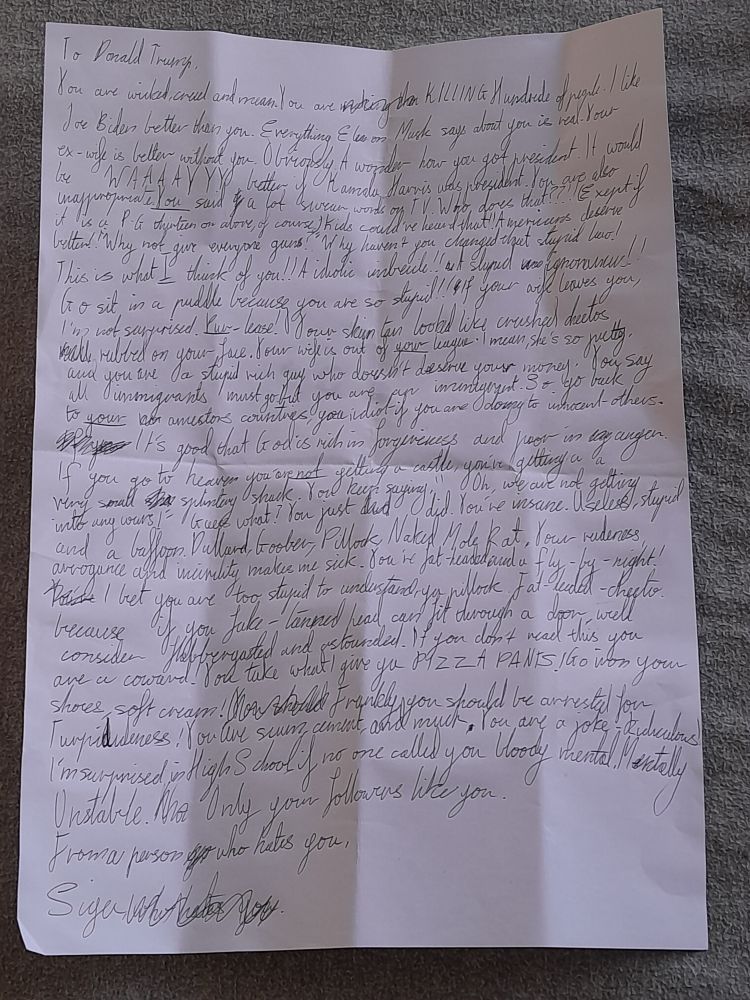 To Donald Trump,
You are wicked, cruel and mean. You are KILLING Hundreds of people. I like
Joe Biden better than you. Everything Elon Musk says about you is real. Your
ex-wife is better without you. Obviously, A wonder how you got president. It would
be WAAAAYYY better if Kamala Harris was president. You are also
inappropriate. You said a lot swear words on TV. Who does that??!! (Exept if
it is a P-G thirteen or above, of course) Kids could've heard that! Americans deserve
better! "Why not give everyone guns!" Why haven't you changed that stupid law!
This is what I think of you!! A idiotic imbecile!! A stupid ignoramus!!
Go sit in a puddle because you are so stupid!!! If your wife leaves you,
I'm not surprised. Pur-lease! Your skin tan looks like crushed cheetos
rubbed on your face. Your wife is out of your league. I mean, she's so pretty
and you are a stupid rich guy who doesn't deserve your money. You say
all immigrants must go but you are an immigrant. So go back
to your ancestors countries you idiot if you are doing to innocent others.
It's good that God is rich in forgiveness and poor in anger.
If you go to heaven you are not getting a castle, you're getting a a
very small splintery shack. You keep saying, "Oh, we are not getting
into any wars!" Guess what? You just did. You're insane. Useless, stupid
and a baffoon. Dullard, Goober, Pillock, Naked Mole Rat. Your rudeness,
arrogance and incivility makes me sick. You're fat-headed and a fly-by-night!
I bet you are too stupid to understand, ya pillock fat-headed-cheeto.
because if you fake-tanned head can fit through a door, well
consider flabbergasted and astounded. If you don't read this you
are a coward. You take what I give ya PIZZA PANTS! Go iron your
shoes, soft cream! Frankly, you should be arrested for
Turpitudeness! You are scum, cement, and muck. You are a joke. Ridiculous
I'm surprised in High School if no one called you bloody mental. Mentally
Unstable. Only your followers like you.
From a person who hates you,